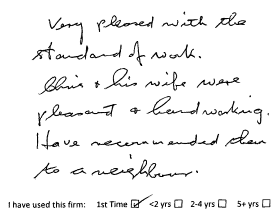 Very pleased with the
standard of work.
Chris + his wife were
pleasant & hardworking.
Have recommended them
to a neighbour.
I have used this firm: 1st Time ☑ <2 yrs ☐ 2-4 yrs ☐ 5+ yrs ☐